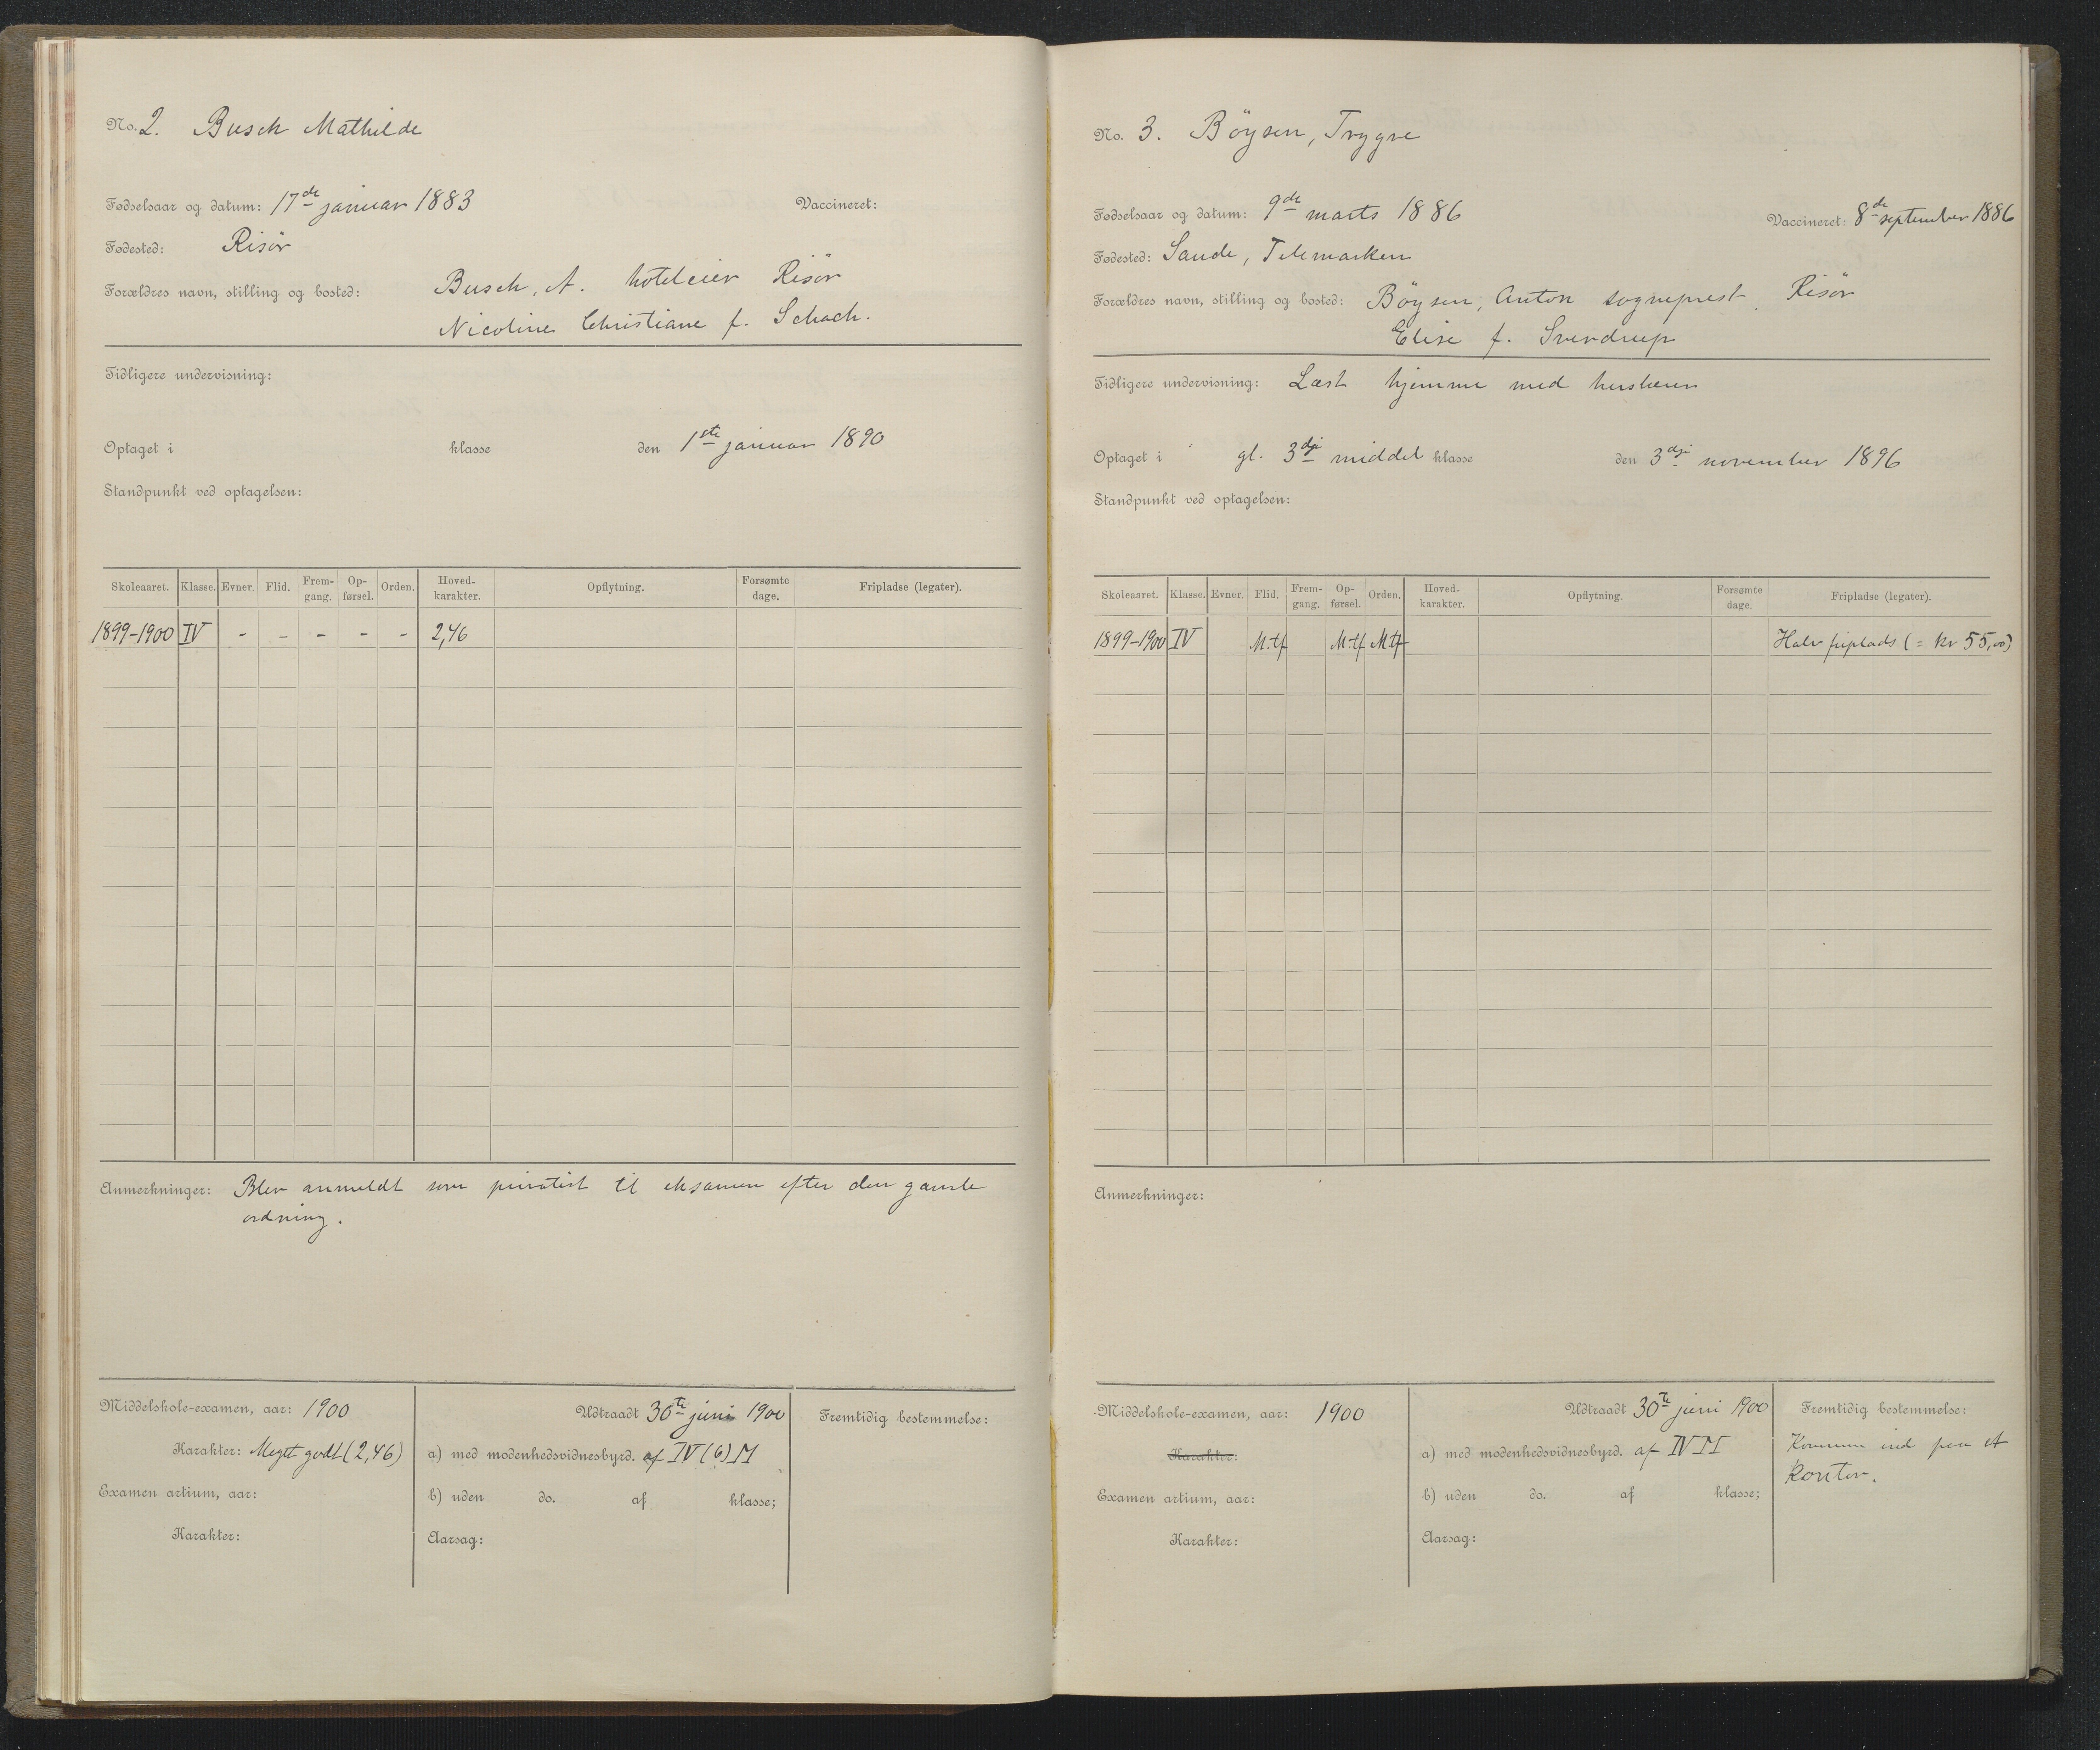 No. 2. Busch Mathilde
Fødselsaar og datum: 17de januar 1883 Vaccineret:
Fødested: Risör
Forældres navn, stilling og bosted: Busch, A. hoteleier Risör
Nicoline Christiane f. Schach.
Tidligere undervisning:
Optaget i klasse den 1ste januar 1890
Standpunkt ved optagelsen:
Skoleaaret. Klasse. Evner. Flid. Frem-gang. Op-førsel. Orden. Hoved-karakter. Opflytning. Forsømte dage. Fripladse (legater).
1899-1900 IV - - - - - 2,46
Anmerkninger: Blev anmeldt som privatist til eksamen efter den gamle
ordning.
Middelskole-examen, aar: 1900 Udtraadt 30te juni 1900 Fremtidig bestemmelse:
Karakter: Meget godt (2,46) a) med modenhedsvidnesbyrd. af IV (6) M
Examen artium, aar: b) uden do. af klasse;
Karakter: Aarsag:
No. 3. Böysen, Trygve
Fødselsaar og datum: 9de marts 1886 Vaccineret: 8de september 1886
Fødested: Saude, Telemarken
Forældres navn, stilling og bosted: Böysen, Anton sogneprest. Risör
Elise f. Sverdrup
Tidligere undervisning: Læst hjemme med huslærer
Optaget i gl. 3dje middel klasse den 3dje november 1896
Standpunkt ved optagelsen:
Skoleaaret. Klasse. Evner. Flid. Frem-gang. Op-førsel. Orden. Hoved-karakter. Opflytning. Forsømte dage. Fripladse (legater).
1899-1900 IV M.tf M.tf M.tf Halv friplads (= kr 55,00)
Anmerkninger:
Middelskole-examen, aar: 1900 Udtraadt 30te juni 1900 Fremtidig bestemmelse:
Karakter: a) med modenhedsvidnesbyrd. af IV M Kommer ind paa et
Examen artium, aar: b) uden do. af klasse; kontor.
Karakter: Aarsag: